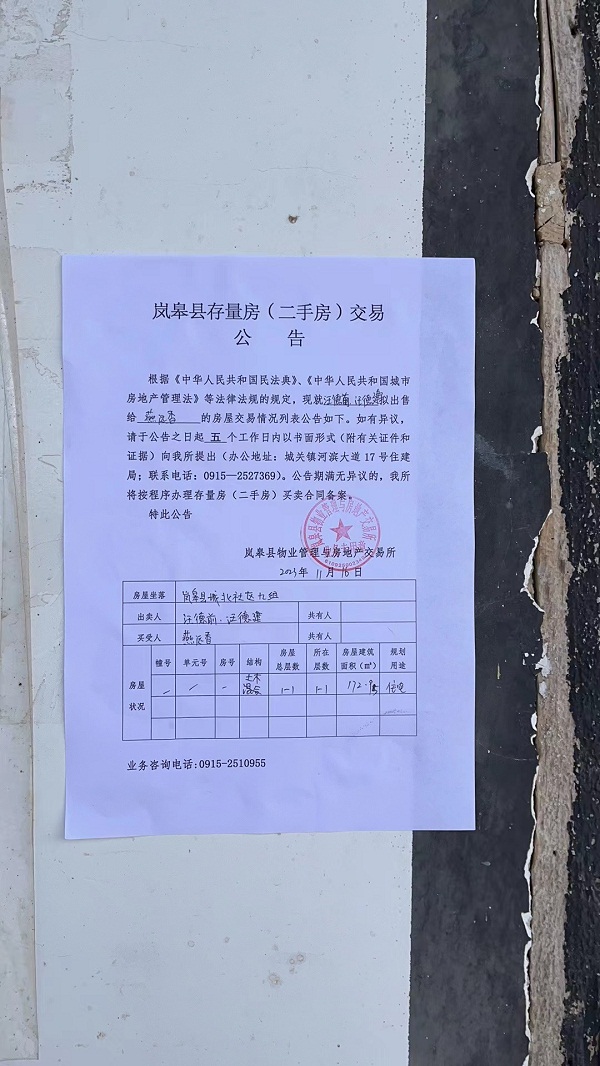 岚皋县存量房(二手房)交易
公 告
根据《中华人民共和国民法典》、《中华人民共和国城市
房地产管理法》等法律法规的规定,现就汪德前 汪德建拟出售
给 燕运香 的房屋交易情况列表公告如下。如有异议,
请于公告之日起 五 个工作日内以书面形式(附有关证件和
证据)向我所提出(办公地址:城关镇河滨大道17号住建
局;联系电话:0915—2527369)。公告期满无异议的,我所
将按程序办理存量房(二手房)买卖合同备案。
特此公告
岚皋县物业管理与房地产交易所
11月16日
房屋坐落 岚皋县城北社区九组
出卖人 汪德前、汪德建 共有人
买受人 燕运香 共有人
房屋状况 幢号 单元号 房号 结构 房屋总层数 所在层数 房屋建筑面积(㎡) 规划用途
/ / / 土木混合 1-1 1-1 住宅
业务咨询电话:0915-2510955